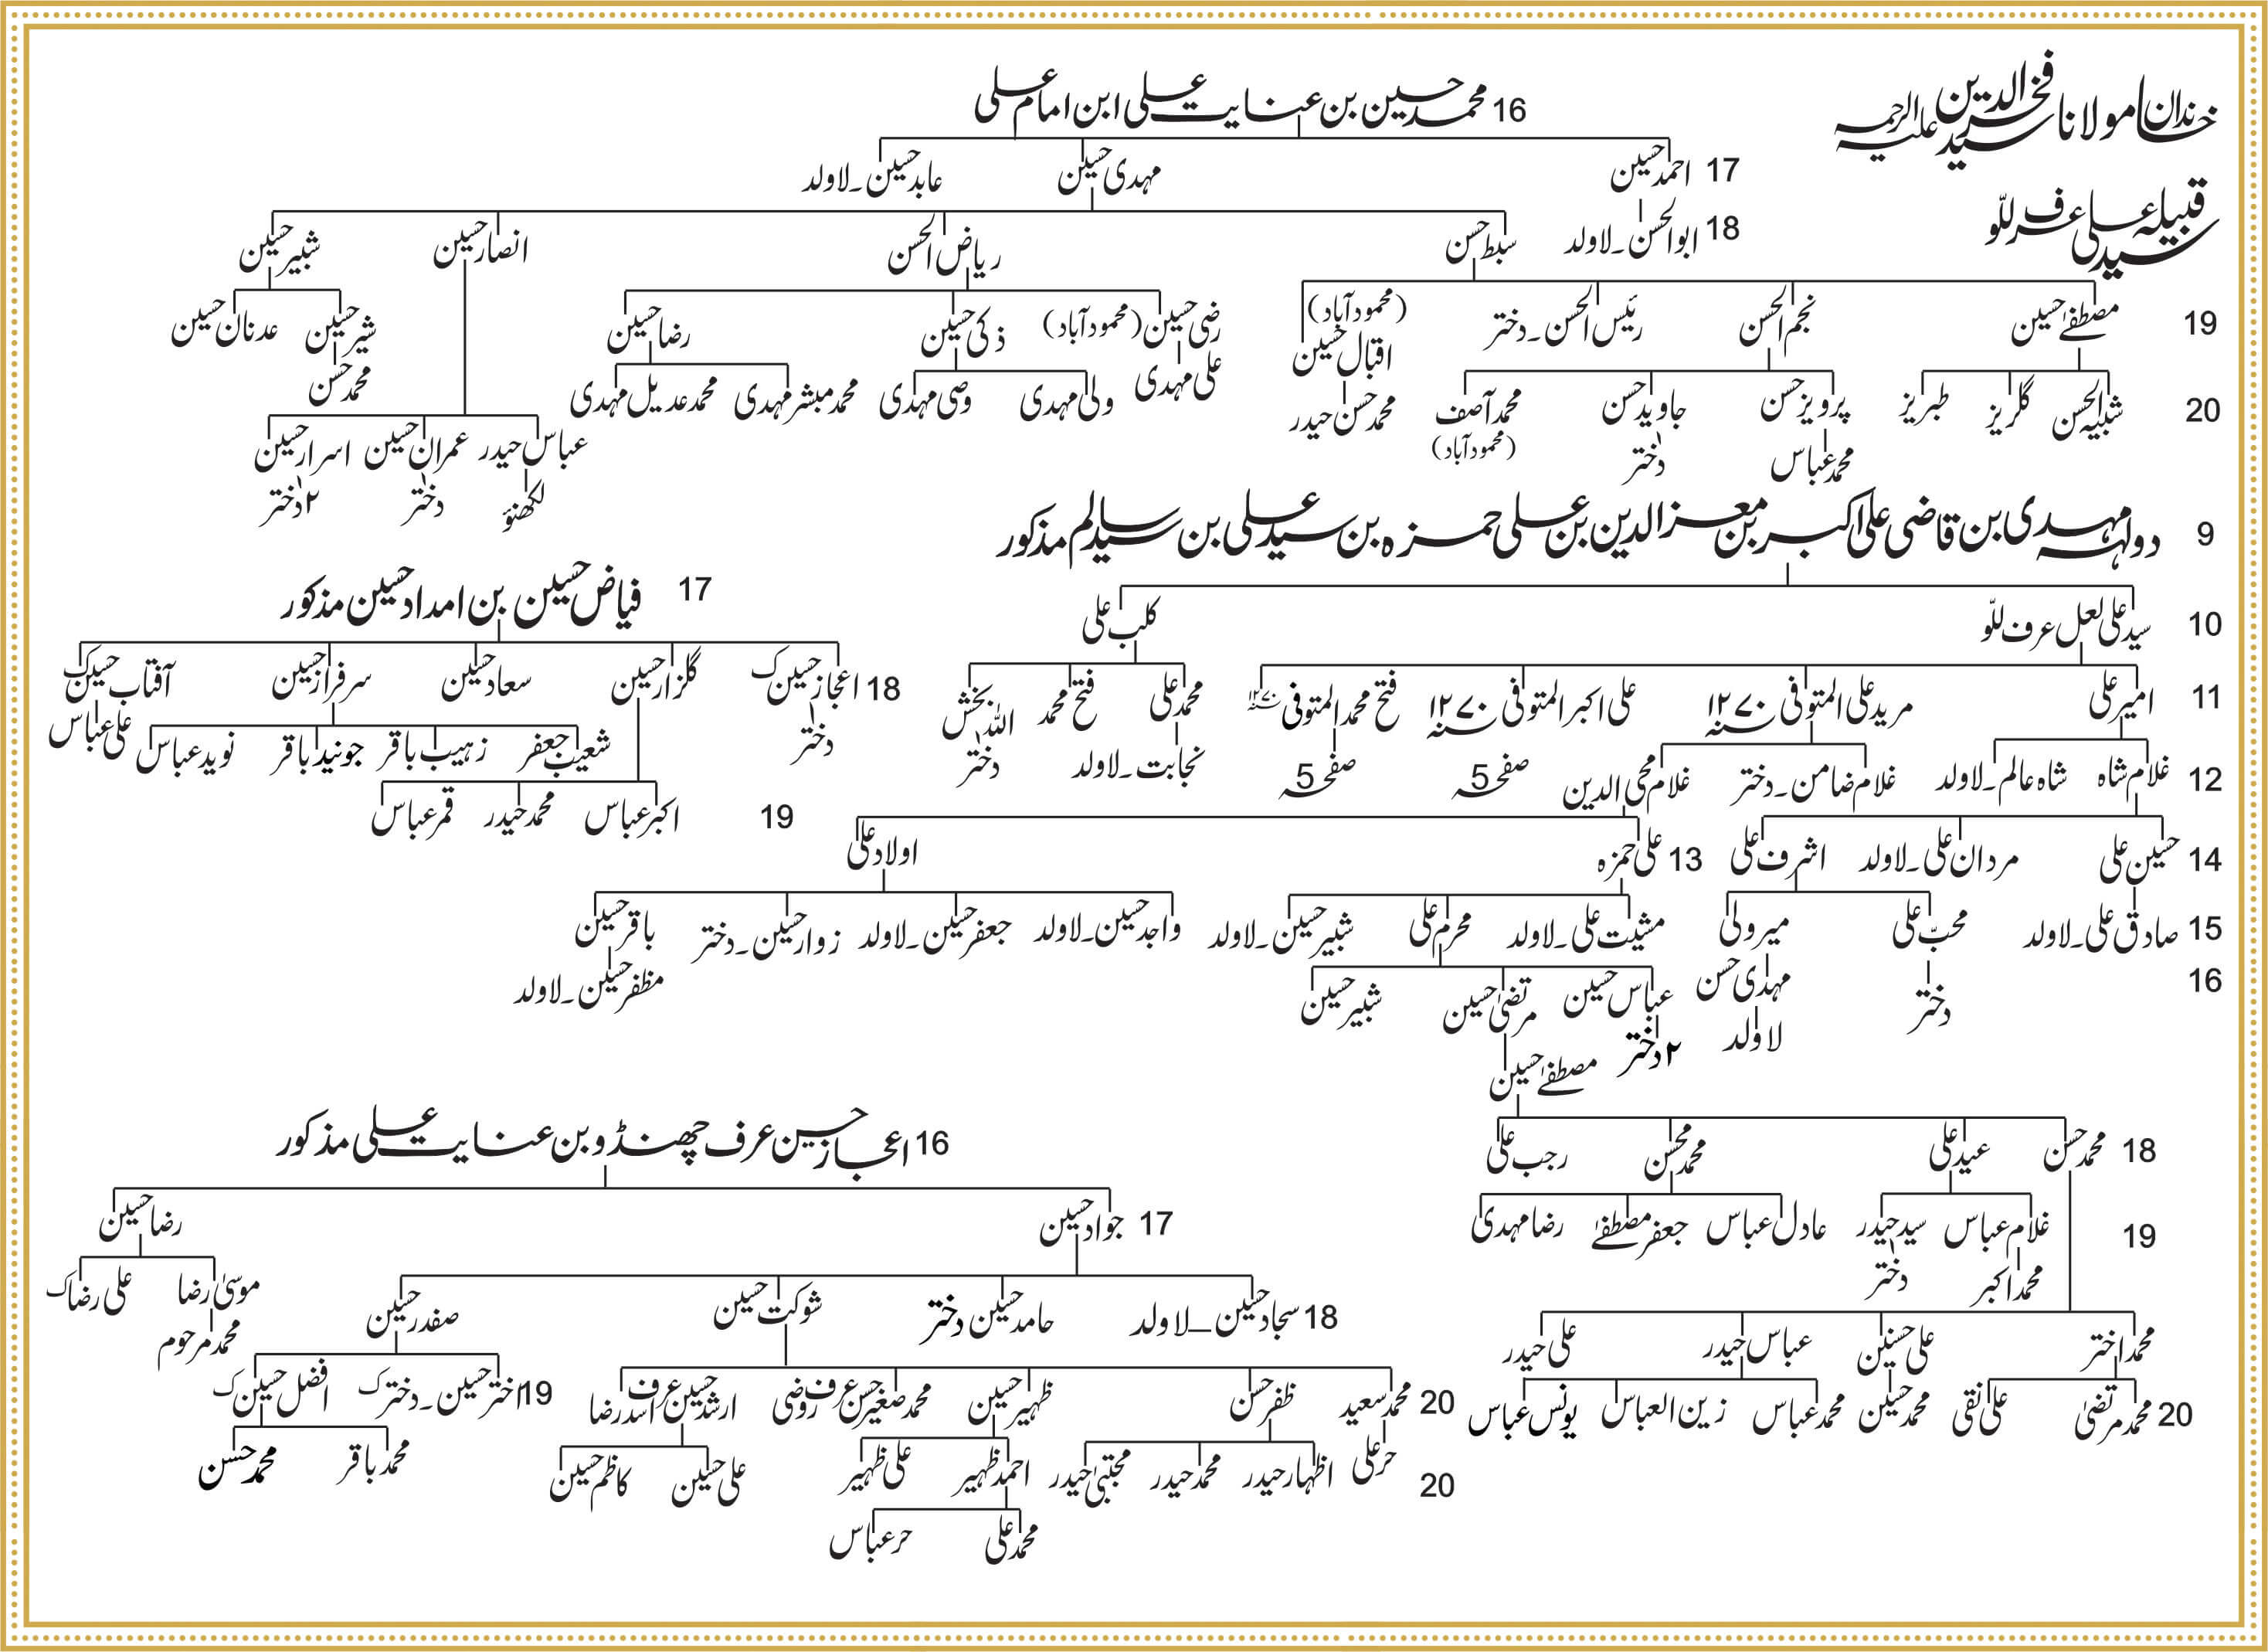 خاندان مولانا سید فخر الدین علیہ الرحمہ
قبیلہ سید علی عرف للّو
16 محمد حسین بن عنایت علی ابن امام علی
17 احمد حسین مہدی حسین عابد حسین۔لاولد
18 ابوالحسن۔لاولد سبط حسن ریاض الحسن انصار حسین شبیر حسین
19 مصطفےٰ حسین نجم الحسن رئیس الحسن۔دختر (محمودآباد) اقبال حسین رضی حسین (محمودآباد) ذکی حسین رضا حسین شیر حسین عدنان حسین
20 شبیہ الحسن گلریز طبریز پرویز حسن جاوید حسن محمد آصف محمد حسن حیدر علی مہدی ولی مہدی وصی مہدی محمد مبشر مہدی محمد عدیل مہدی محمد حسن
محمد عباس دختر (محمودآباد) عباس حیدر عمران حسین اسرار حسین
لکھنؤ دختر ۲ دختر
9 دولہہ مہدی بن قاضی علی اکبر بن معز الدین بن علی حمزہ بن سید علی بن سید سالم مذکور
10 سید علی لعل عرف للّو کلب علی
11 امیر علی مرید علی المتوفی ۱۲۷۰سنہ علی اکبر المتوفی ۱۲۷۰سنہ فتح محمد المتوفی ۱۲۷۰سنہ محمد علی فتح محمد اللہ بخش
12 غلام شاہ شاہ عالم۔لاولد غلام ضامن۔دختر غلام محی الدین صفحہ 5 صفحہ 5 نجابت۔لاولد دختر
14 حسین علی مردان علی۔لاولد اشرف علی 13 علی حمزہ اولاد علی
15 صادق علی۔لاولد محبّ علی میر ولی مشیت علی۔لاولد محرم علی شبیر حسین۔لاولد واجد حسین۔لاولد جعفر حسین۔لاولد زوار حسین۔دختر باقر حسین
16 دختر مہدی حسن عباس حسین مرتضیٰ حسین شبیر حسین مظفر حسین۔لاولد
لاولد ۲ دختر مصطفےٰ حسین
18 محمد حسن عید علی محمد محسن رجب علی
19 غلام عباس سید حیدر عادل عباس جعفر مصطفےٰ رضا مہدی
محمد اکبر دختر
محمد اختر علی حسنین عباس حیدر علی حیدر
20 محمد مرتضیٰ علی نقی محمد حسین محمد عباس زین العباس یونس عباس
17 فیاض حسین بن امداد حسین مذکور
18 اعجاز حسین ک گلزار حسین سعاد حسین سرفراز حسین آفتاب حسین ک
دختر شعیب جعفر زہیب باقر جونید باقر نوید عباس علی عباس
19 اکبر عباس محمد حیدر قمر عباس
16 اعجاز حسین عرف چھنڈو بن عنایت علی مذکور
17 جواد حسین رضا حسین
موسیٰ رضا علی رضا ک
محمد مرحوم
18 سجاد حسین – لاولد حامد حسین دختر شوکت حسین صفدر حسین
19 اختر حسین۔دختر ک افضل حسین ک
20 محمد سعید ظفر حسن ظہیر حسین محمد صغیر حسن عرف روضی ارشد حسین عرف اسد رضا
20 حر علی اظہار حیدر محمد حیدر مجتبیٰ حیدر احمد ظہیر علی ظہیر علی حسین کاظم حسین محمد باقر محمد حسن
محمد علی حر عباس